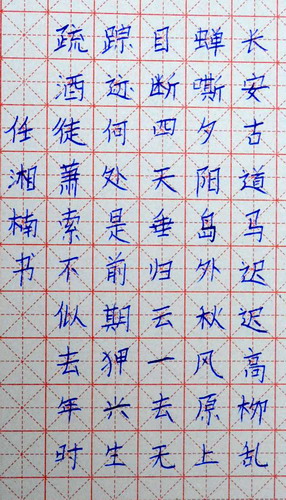 长安古道马迟迟高柳乱
蝉嘶夕阳岛外秋风原上
目断四天垂归云一去无
踪迹何处是前期狎兴生
疏酒徒萧索不似去年时
任湘楠书